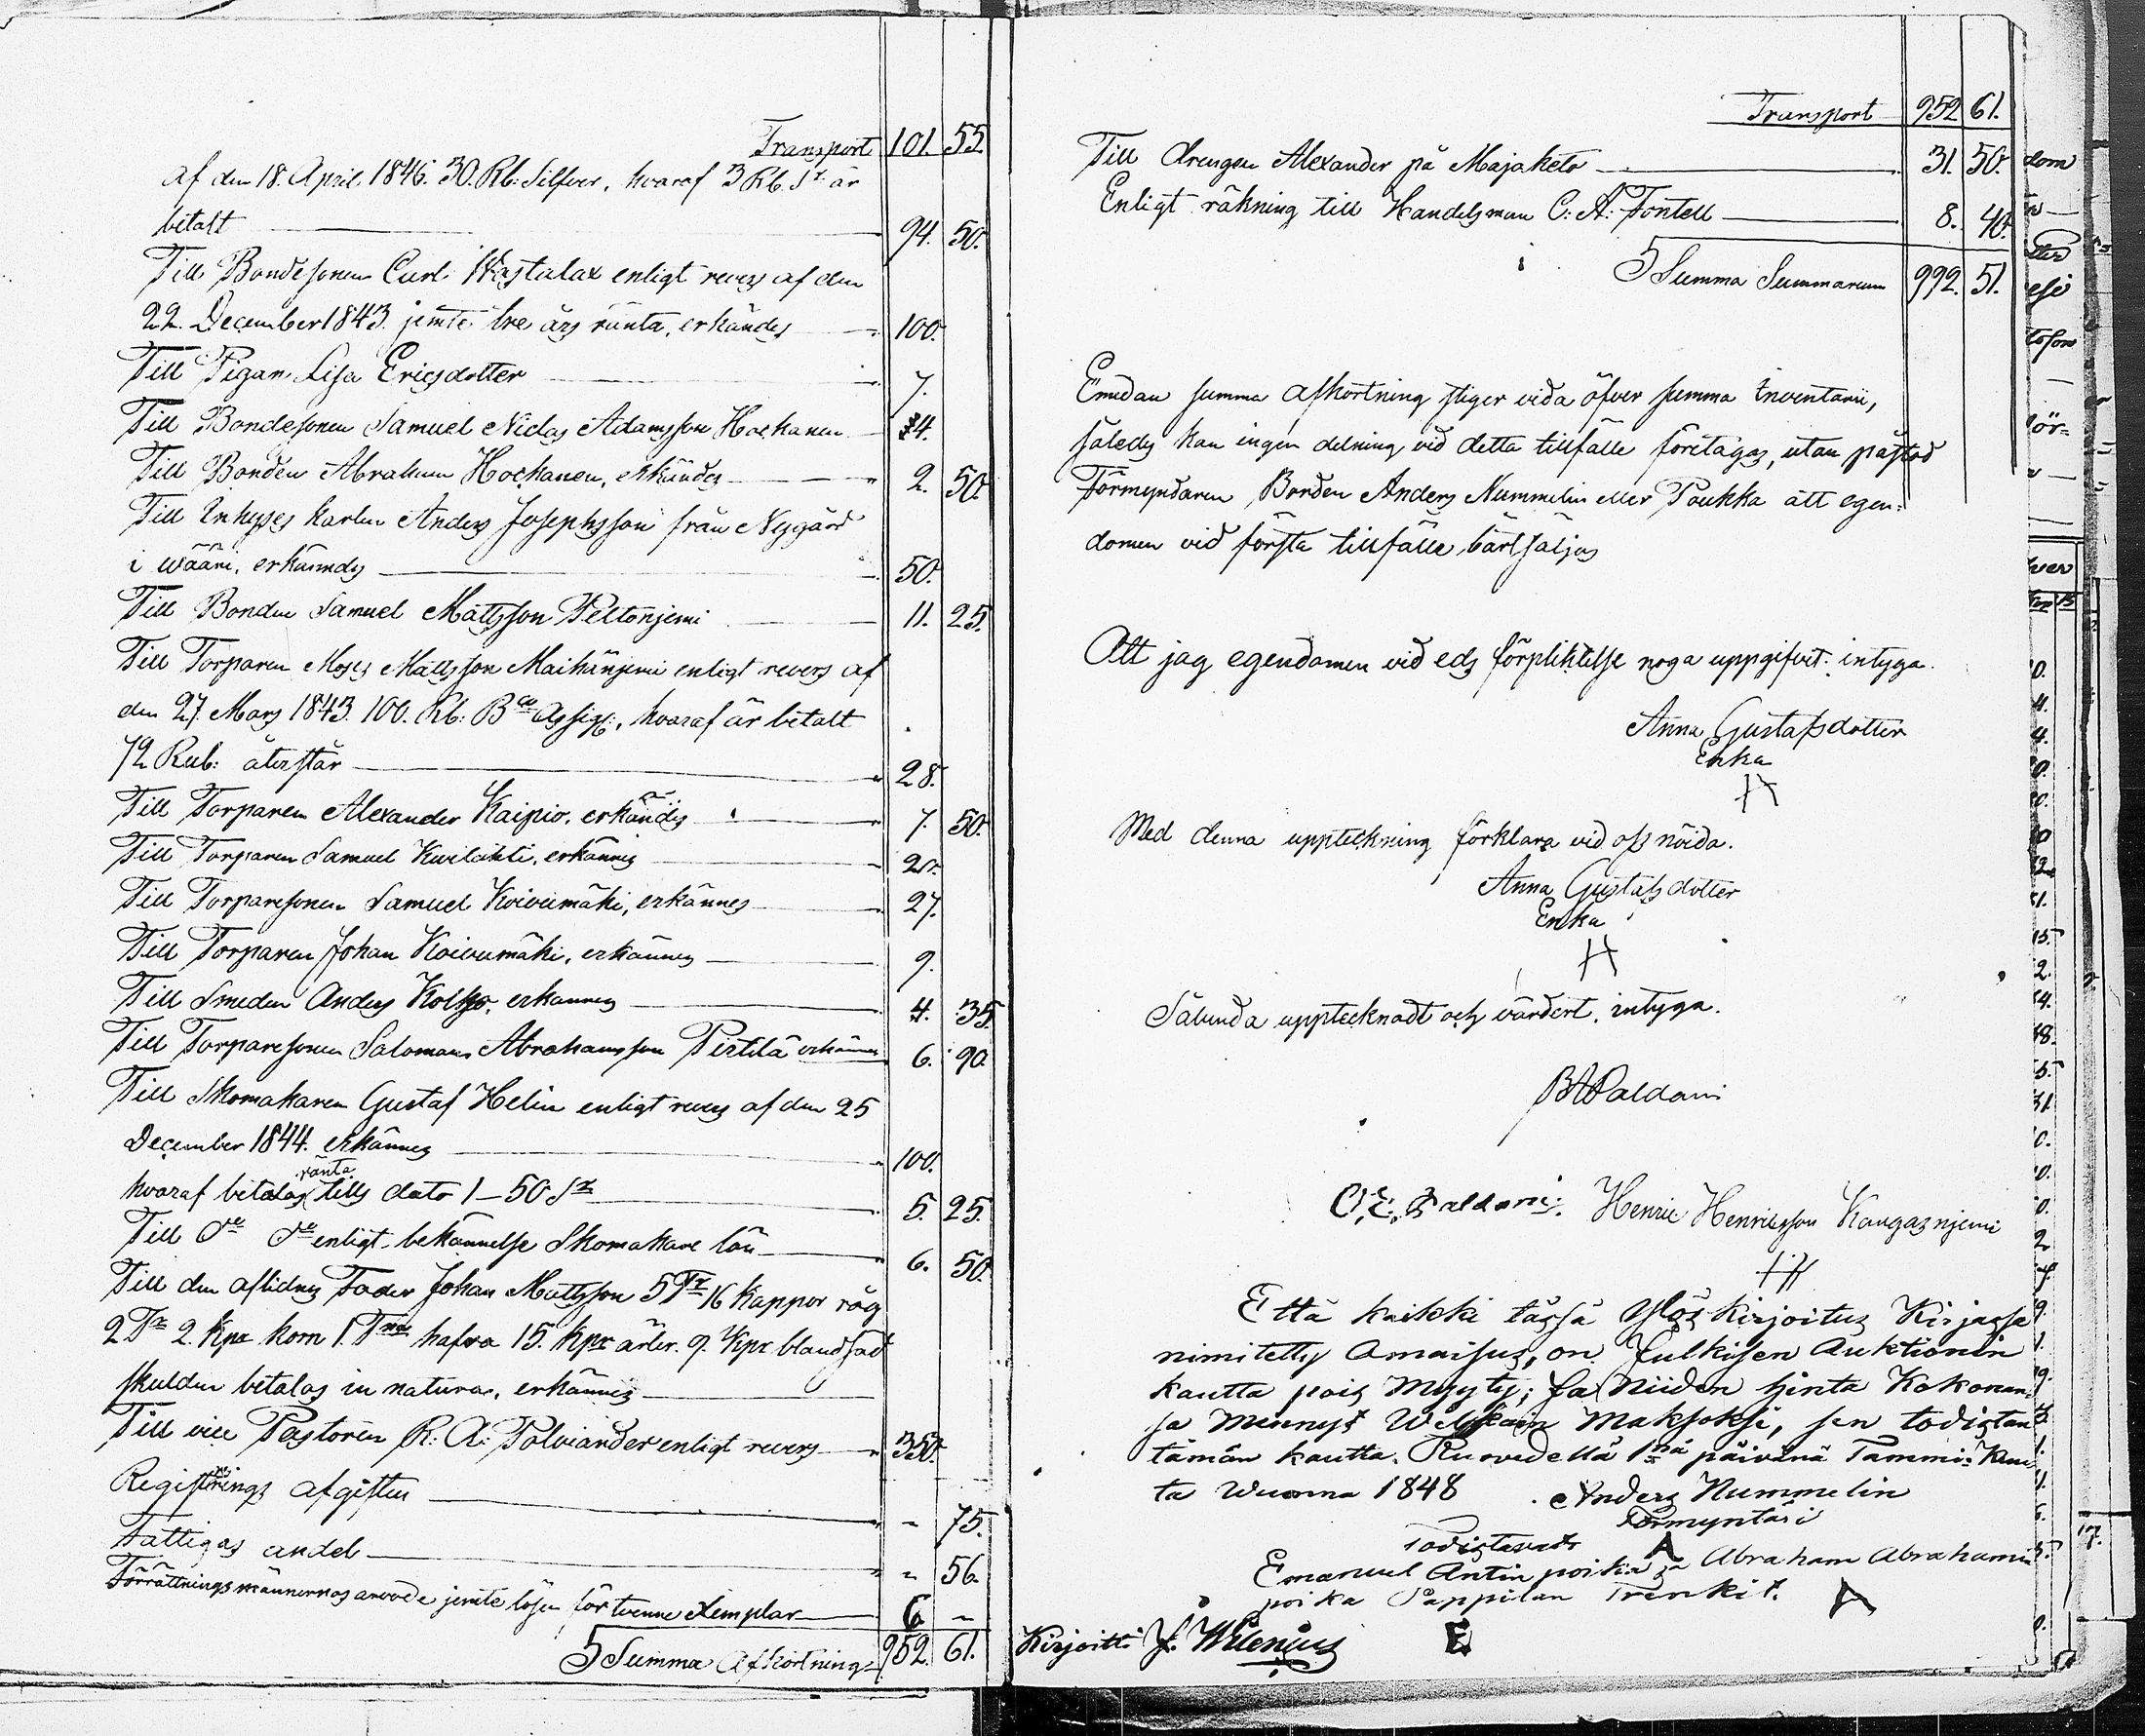 Transport 101. 55.
af den 18. April 1846. 30. Rb: Silfver, hvaraf 3 Rb. Sr. är
betalt 94. 50.
Till Bondesonen Carl Westalax enligt revers af den
22. December 1843. jemte tre års ränta, erkändes 100.
Till Pigan Lisa Ericsdotter 7.
Till Bondesonen Samuel Niclas Adamsson Hoekanen 4.
Till Bonden Abraham Hoekanen, erkändes 2. 50.
Till Inhyses karlen Anders Josephsson från Nygård
i wääri, erkänndes 50.
Till Bonden Samuel Mattsson Peltonjemi 11. 25.
Till Torparen Moses Mattsson Maihänjemi enligt revers af
den 27. Mars 1843. 100. Rb: Bco Assig:, hvaraf är betalt
72 Rub: återstår 28.
Till Torparen Alexander Kaipio, erkändes 7. 50.
Till Torparen Samuel Kuilahti, erkännes
Till Torparesonen Samuel Koivumäki, erkännes 27.
Till Torparen Johan Koivumäki, erkännes 9.
Till Smeden Anders Kolho, erkännes 4. 35.
Till Torparesonen Salomon Abrahamsson Pirtilä erkännes 6. 90.
Till Skomakaren Gustaf Helin enligt revers af den 25
December 1844. erkännes 100.
hvaraf betalas ränta tills dato 1–50 Sr 5. 25.
Till De De enligt bekännelse Skomakare lön 6. 50.
Till den aflidnes Fader Johan Mattsson 5 Tr 16 Kappor råg
2 Tr 2. Kpr korn 1. Tna hafra 15. Kpr ärter. 9. Kpr blandsäd
skulden betalas in natura, erkännes
Till vice Pastoren R: A: Polviander enligt revers 350.
Registrerings afgiften - 75.
Fattigas andel - 56.
Förrättningsmännernas arvode jemte lösen för tvenne exemplar 6 -
S Summa Afkortning 952. 61.
Transport 952 61.
Till drengen Alexander på Majaketo 31. 50.
Enligt räkning till Handelsman C: A: Fontell 8. 40.
S Summa Summarum 992. 51.
Emedan summa Afkortning stiger vida öfver summa Inventarii,
således kan ingen delning vid detta tillfälle företagas, utan påstod
Förmyndaren Bonden Anders Nummelin eller Poukka att egen-
domen vid första tillfälle bårtsäljas
Att jag egendomen vid eds förpliktelse noga uppgifvit: intyga.
Anna Gustafsdotter
Enka
Med denna uppteckning förklara vid oss nöida.
Anna Gustafsdotter
Enka
Sålunda upptecknadt och värdert, intyga.
B A Paldani
C. E. Paldani. Henric Henricsson Kangasnjemi
Että kaikki tässä Ylös kirjoitus Kirjassa
nimitetty Omaisus, on Julkisen Auktionin
kautta pois Myyty; Ja Niiden hinta Kokonan-
sa Mennyt Welkain Maksoksi, sen todistan
tämän kautta. Ruovedellä 1nä päivänä Tammi: Kuu-
ta Wuonna 1848 Anders Nummelin
Förmyntäri
Todistavat
Emanuel Antin poika ja Abraham Abrahamin
poika Pappilan Trenkit.
Kirjoitti J. Wilenius